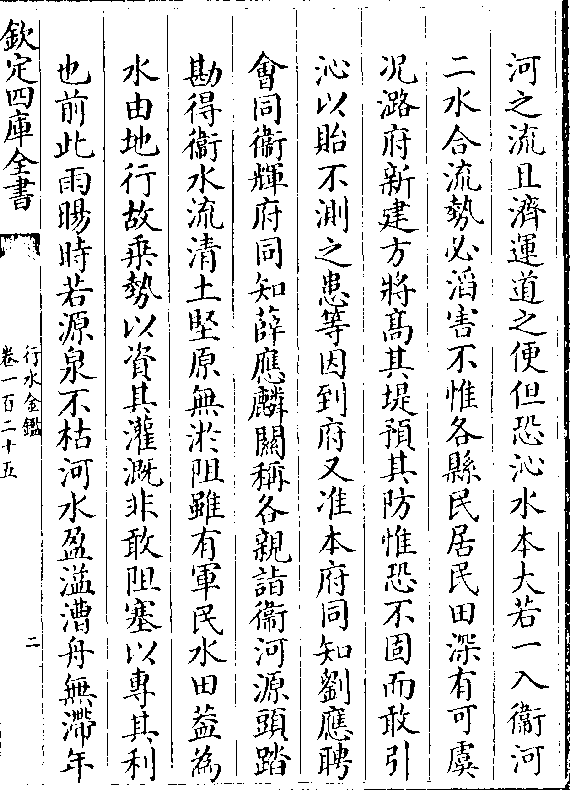 河之流且濟運道之便但恐沁水本大若一入衞河
二水合流勢必滔害不惟各縣民居民田深有可虞
况潞府新建方將髙其堤預其防惟恐不固而敢引
沁以貽不測之患等因到府又准本府同知劉應聘
會同衞輝府同知薛應麟關稱各親詣衞河源頭踏
勘得衞水流清土堅原無淤阻雖有軍民水田葢為
水由地行故乗勢以資其灌溉非敢阻塞以專其利
也前此雨暘時若源泉不枯河水盈溢漕舟無滯年
欽定四庫全書
行水金鑑
卷一百二十五
二